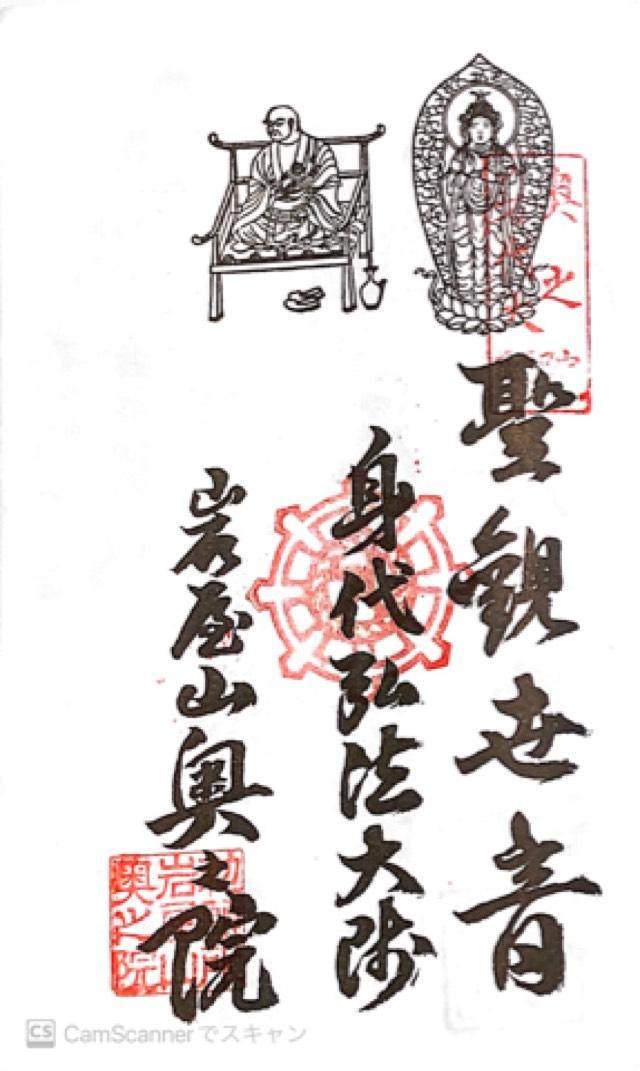 聖観世音
身代弘法大師
岩屋山奥之院
奥之院
CS CamScannerでスキャン